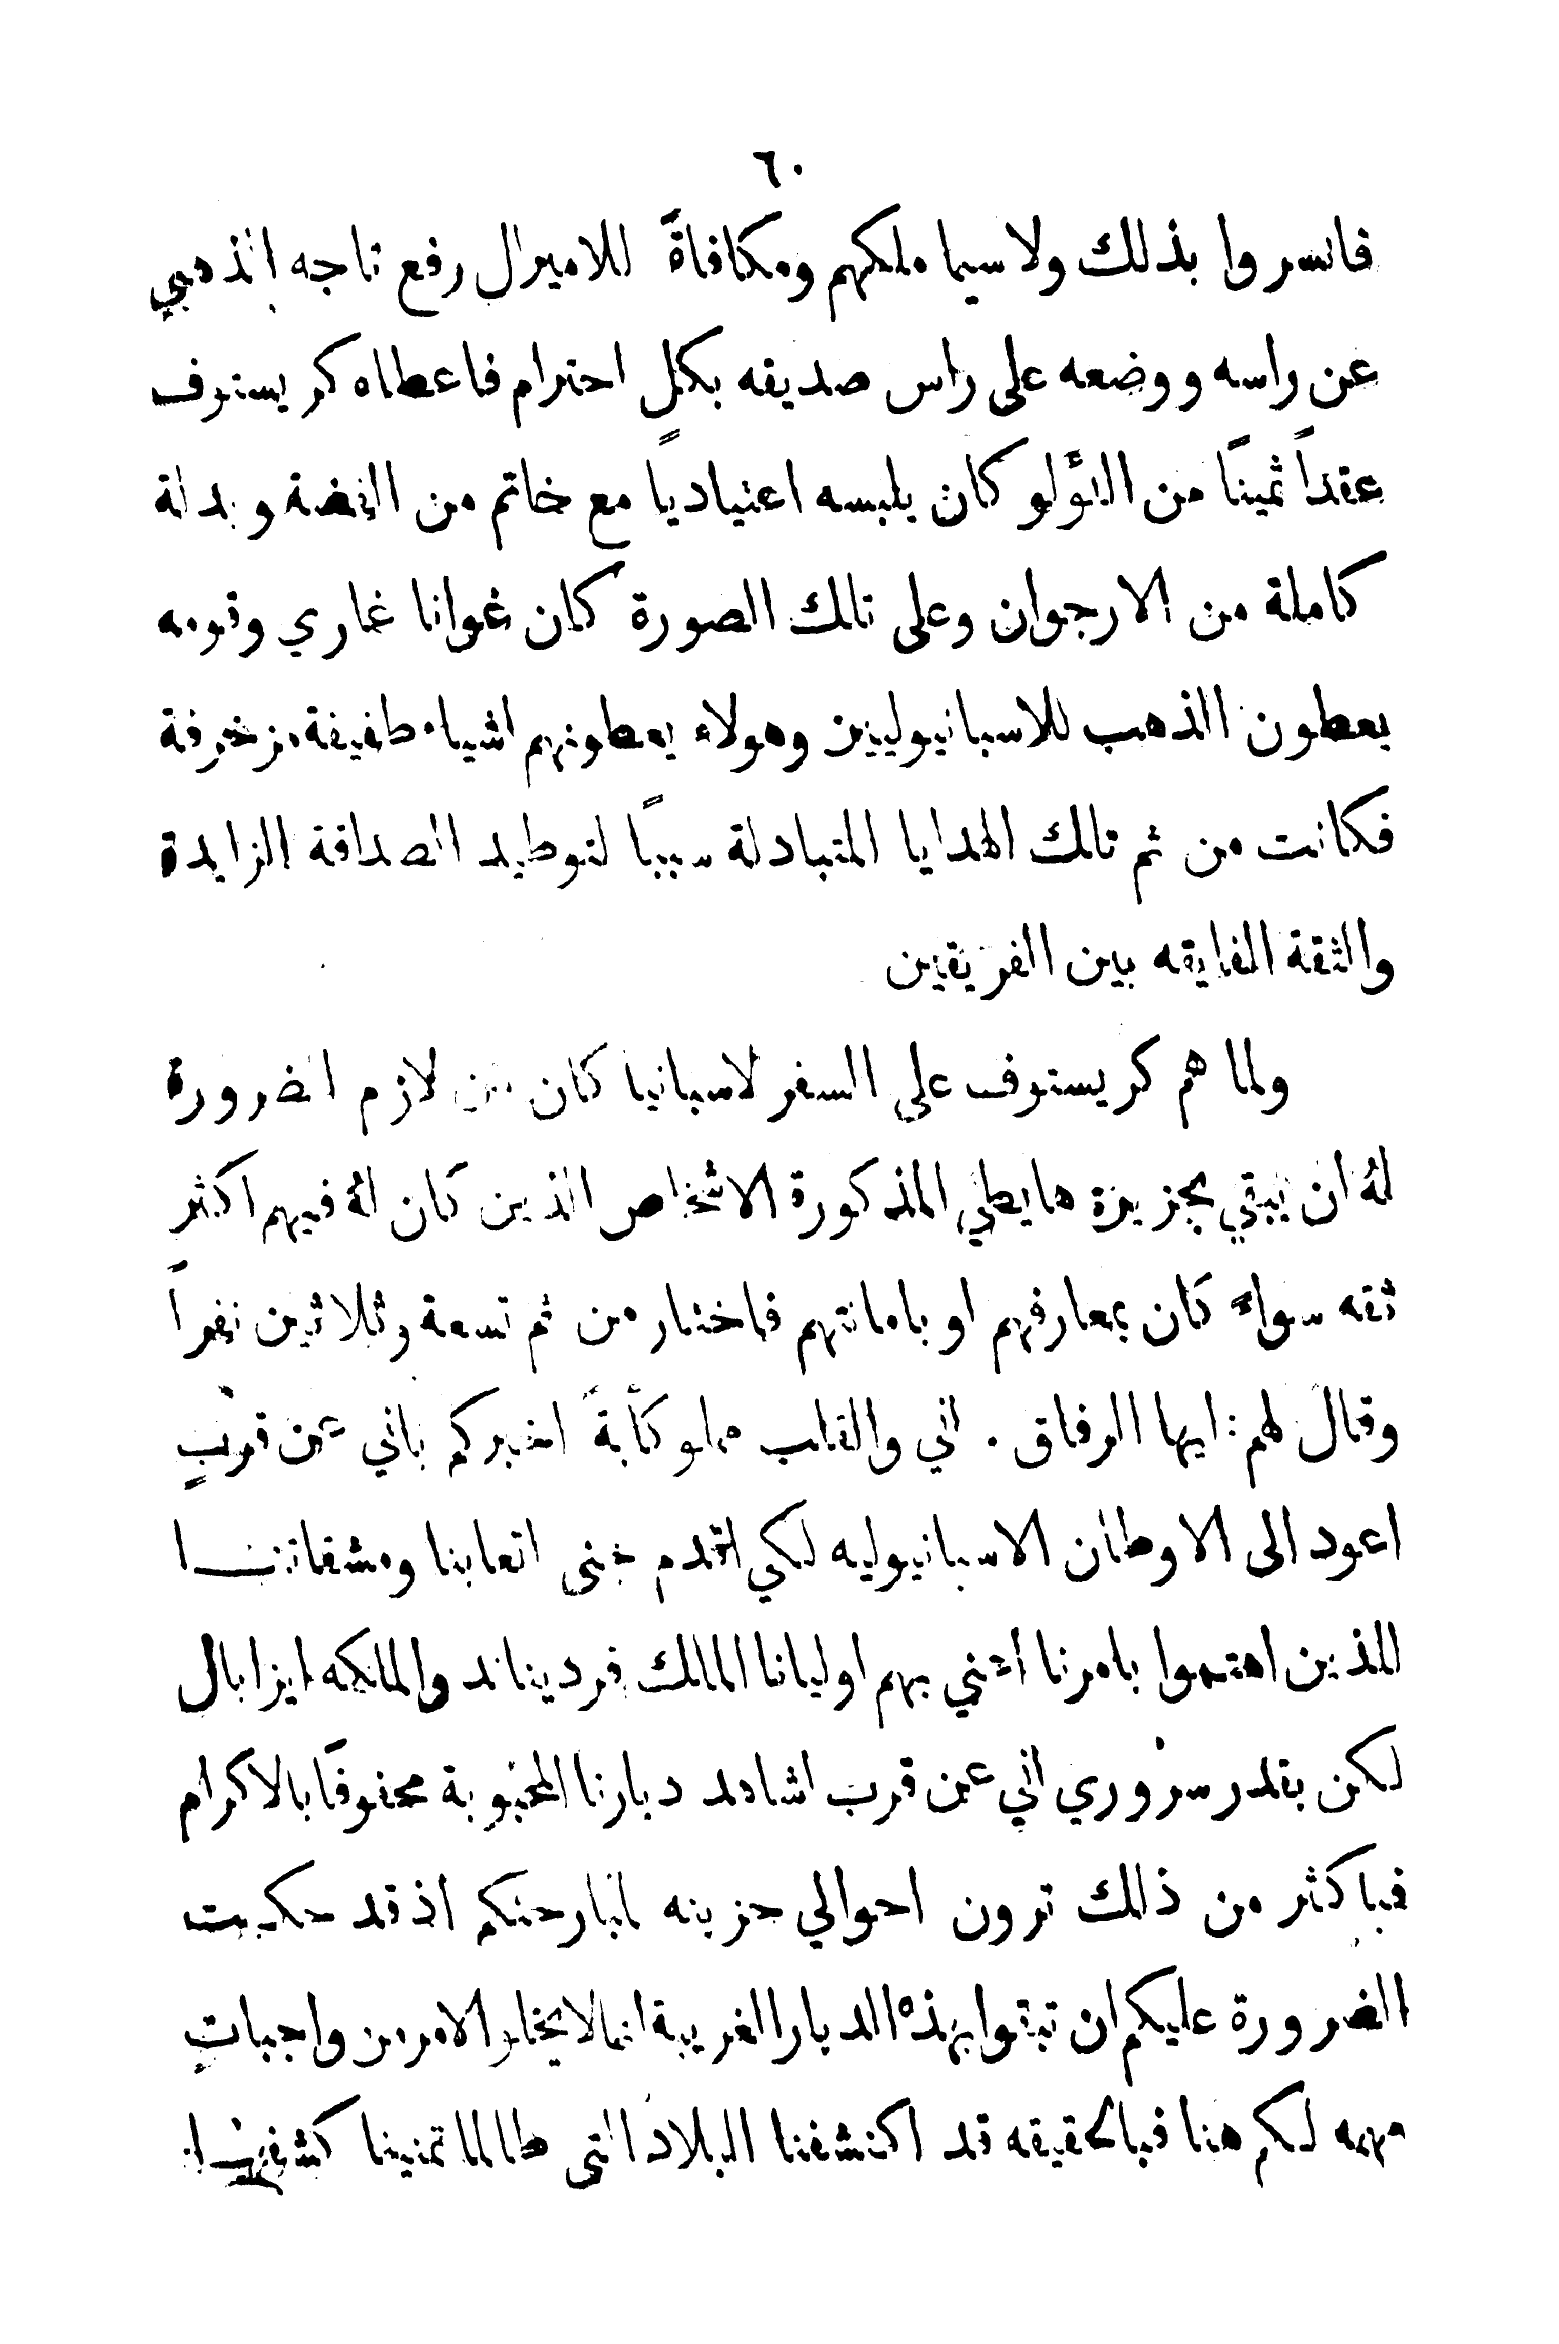 ٦٠
فانسروا بذلك ولا سيما ملكهم ومكافاةً للاميرال رفع تاجه الذهبي
عن راسه ووضعه على راس صديقه بكلِ احترام فاعطاه كريستوف
عقداً ثمينًا من اللؤلو كان يلبسه اعتياديًا مع خاتم من الفضة وبدلة
كاملة من الارجوان وعلى تلك الصورة كان غوانا غاري وقومه
يعطون الذهب للاسبانيوليين وهولاء يعطونهم اشياء طفيفة مزخرفة
فكانت من ثم تلك الهدايا المتبادلة سببًا لتوطيد الصداقة الزايدة
والثقة الفايقه بين الفريقين
ولما هم كريستوف على السفر لاسبانيا كان من لازم الضرورة
لهُ ان يبقي بجزيرة هايطي المذكورة الاشخاص الذين كان لهُ فيهم اكثر
ثقه سواءً كان بمعارفهم او بامانتهم فاختار من ثم تسعة وثلاثين نفراً
وقال لهم: ايها الرفاق. اني والقلب مملو كأبةً اخبركم باني عن قربٍ
اعود الى الاوطان الاسبانيوليه لكي اقدم جنى اتعابنا ومشقاتنا
للذين اهتموا بامرنا اعني بهم اوليانا الملك فرديناند والملكه ايزابال
لكن بقدر سروري اني عن قرب اشاهد ديارنا المحبوبة محفوفًا بالاكرام
فباكثر من ذلك ترون احوالي حزينه لمبارحتكم اذ قد حكمت
الضرورة عليكم ان تبقوا بهذه الديار الغريبة انما لا يخلو الامر من واجباتٍ
مهمه لكم هنا فبالحقيقه قد اكتشفنا البلاد التى طالما تمنينا كشفها